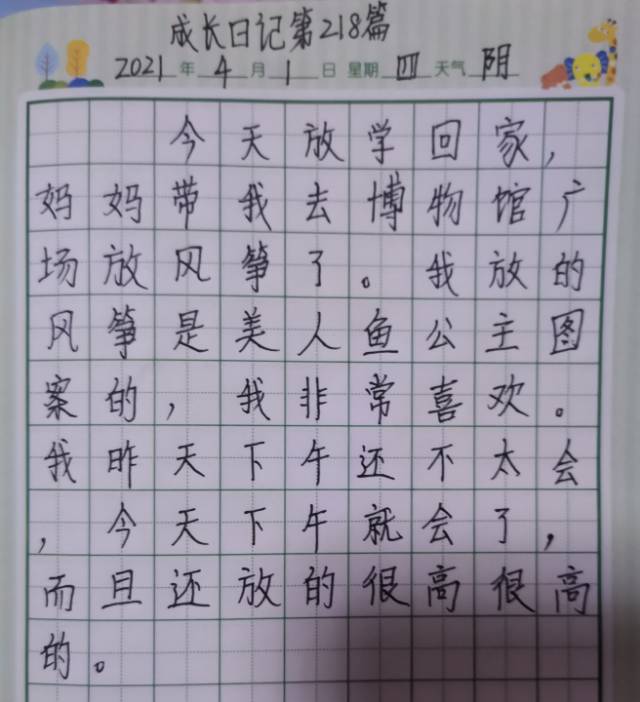 成长日记第218篇
2021年4月1日 星期四 天气阴
今天放学回家,
妈妈带我去博物馆广
场放风筝了。我放的
风筝是美人鱼公主图
案的,我非常喜欢。
我昨天下午还不太会
,今天下午就会了,
而且还放的很高很高
的。